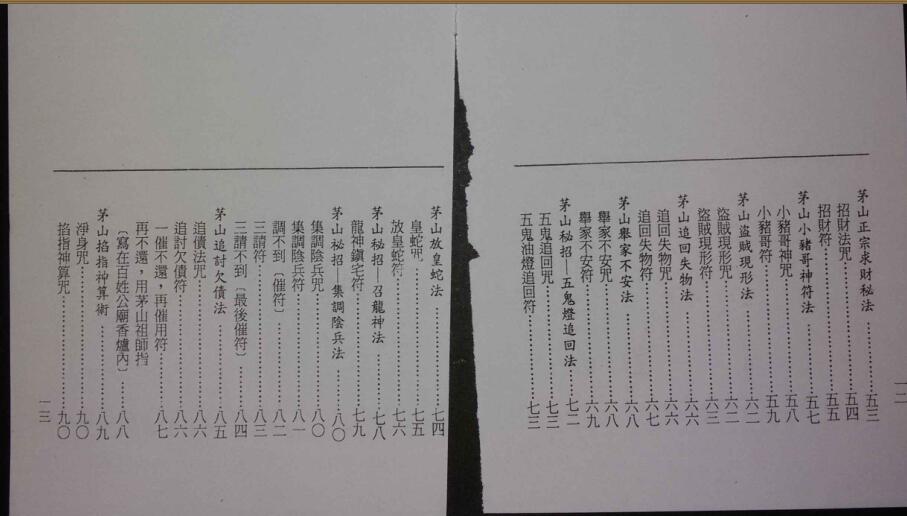 茅山正宗求財秘法………五三
招財法咒………五四
招財符………五五
茅山小豬哥神符法………五七
小豬哥神咒………五八
小豬哥符………五九
茅山盜賊現形法………六二
盜賊現形咒………六二
盜賊現形符………六三
茅山追回失物法………六六
追回失物咒………六六
追回失物符………六七
茅山舉家不安法………六八
舉家不安咒………六八
舉家不安符………六九
茅山秘招—五鬼燈追回法………七二
五鬼追回咒………七三
五鬼油燈追回符………七三
一二
茅山放皇蛇法………七四
皇蛇咒………七五
放皇蛇符………七六
茅山秘招—召龍神法………七八
龍神鎮宅符………七九
茅山祕招—集調陰兵法………八〇
集調陰兵咒………八〇
集調陰兵符………八一
調不到〔催符〕………八二
三請符………八三
三請不到〔最後催符〕………八四
茅山追討欠債法………八五
追債法咒………八六
追討欠債符………八六
一催不還，再催用符………八七
再不還，用茅山祖師指
〔寫在百姓公廟香爐內〕………八八
茅山掐指神算術………八九
淨身咒………九〇
掐指神算咒………九〇
一三